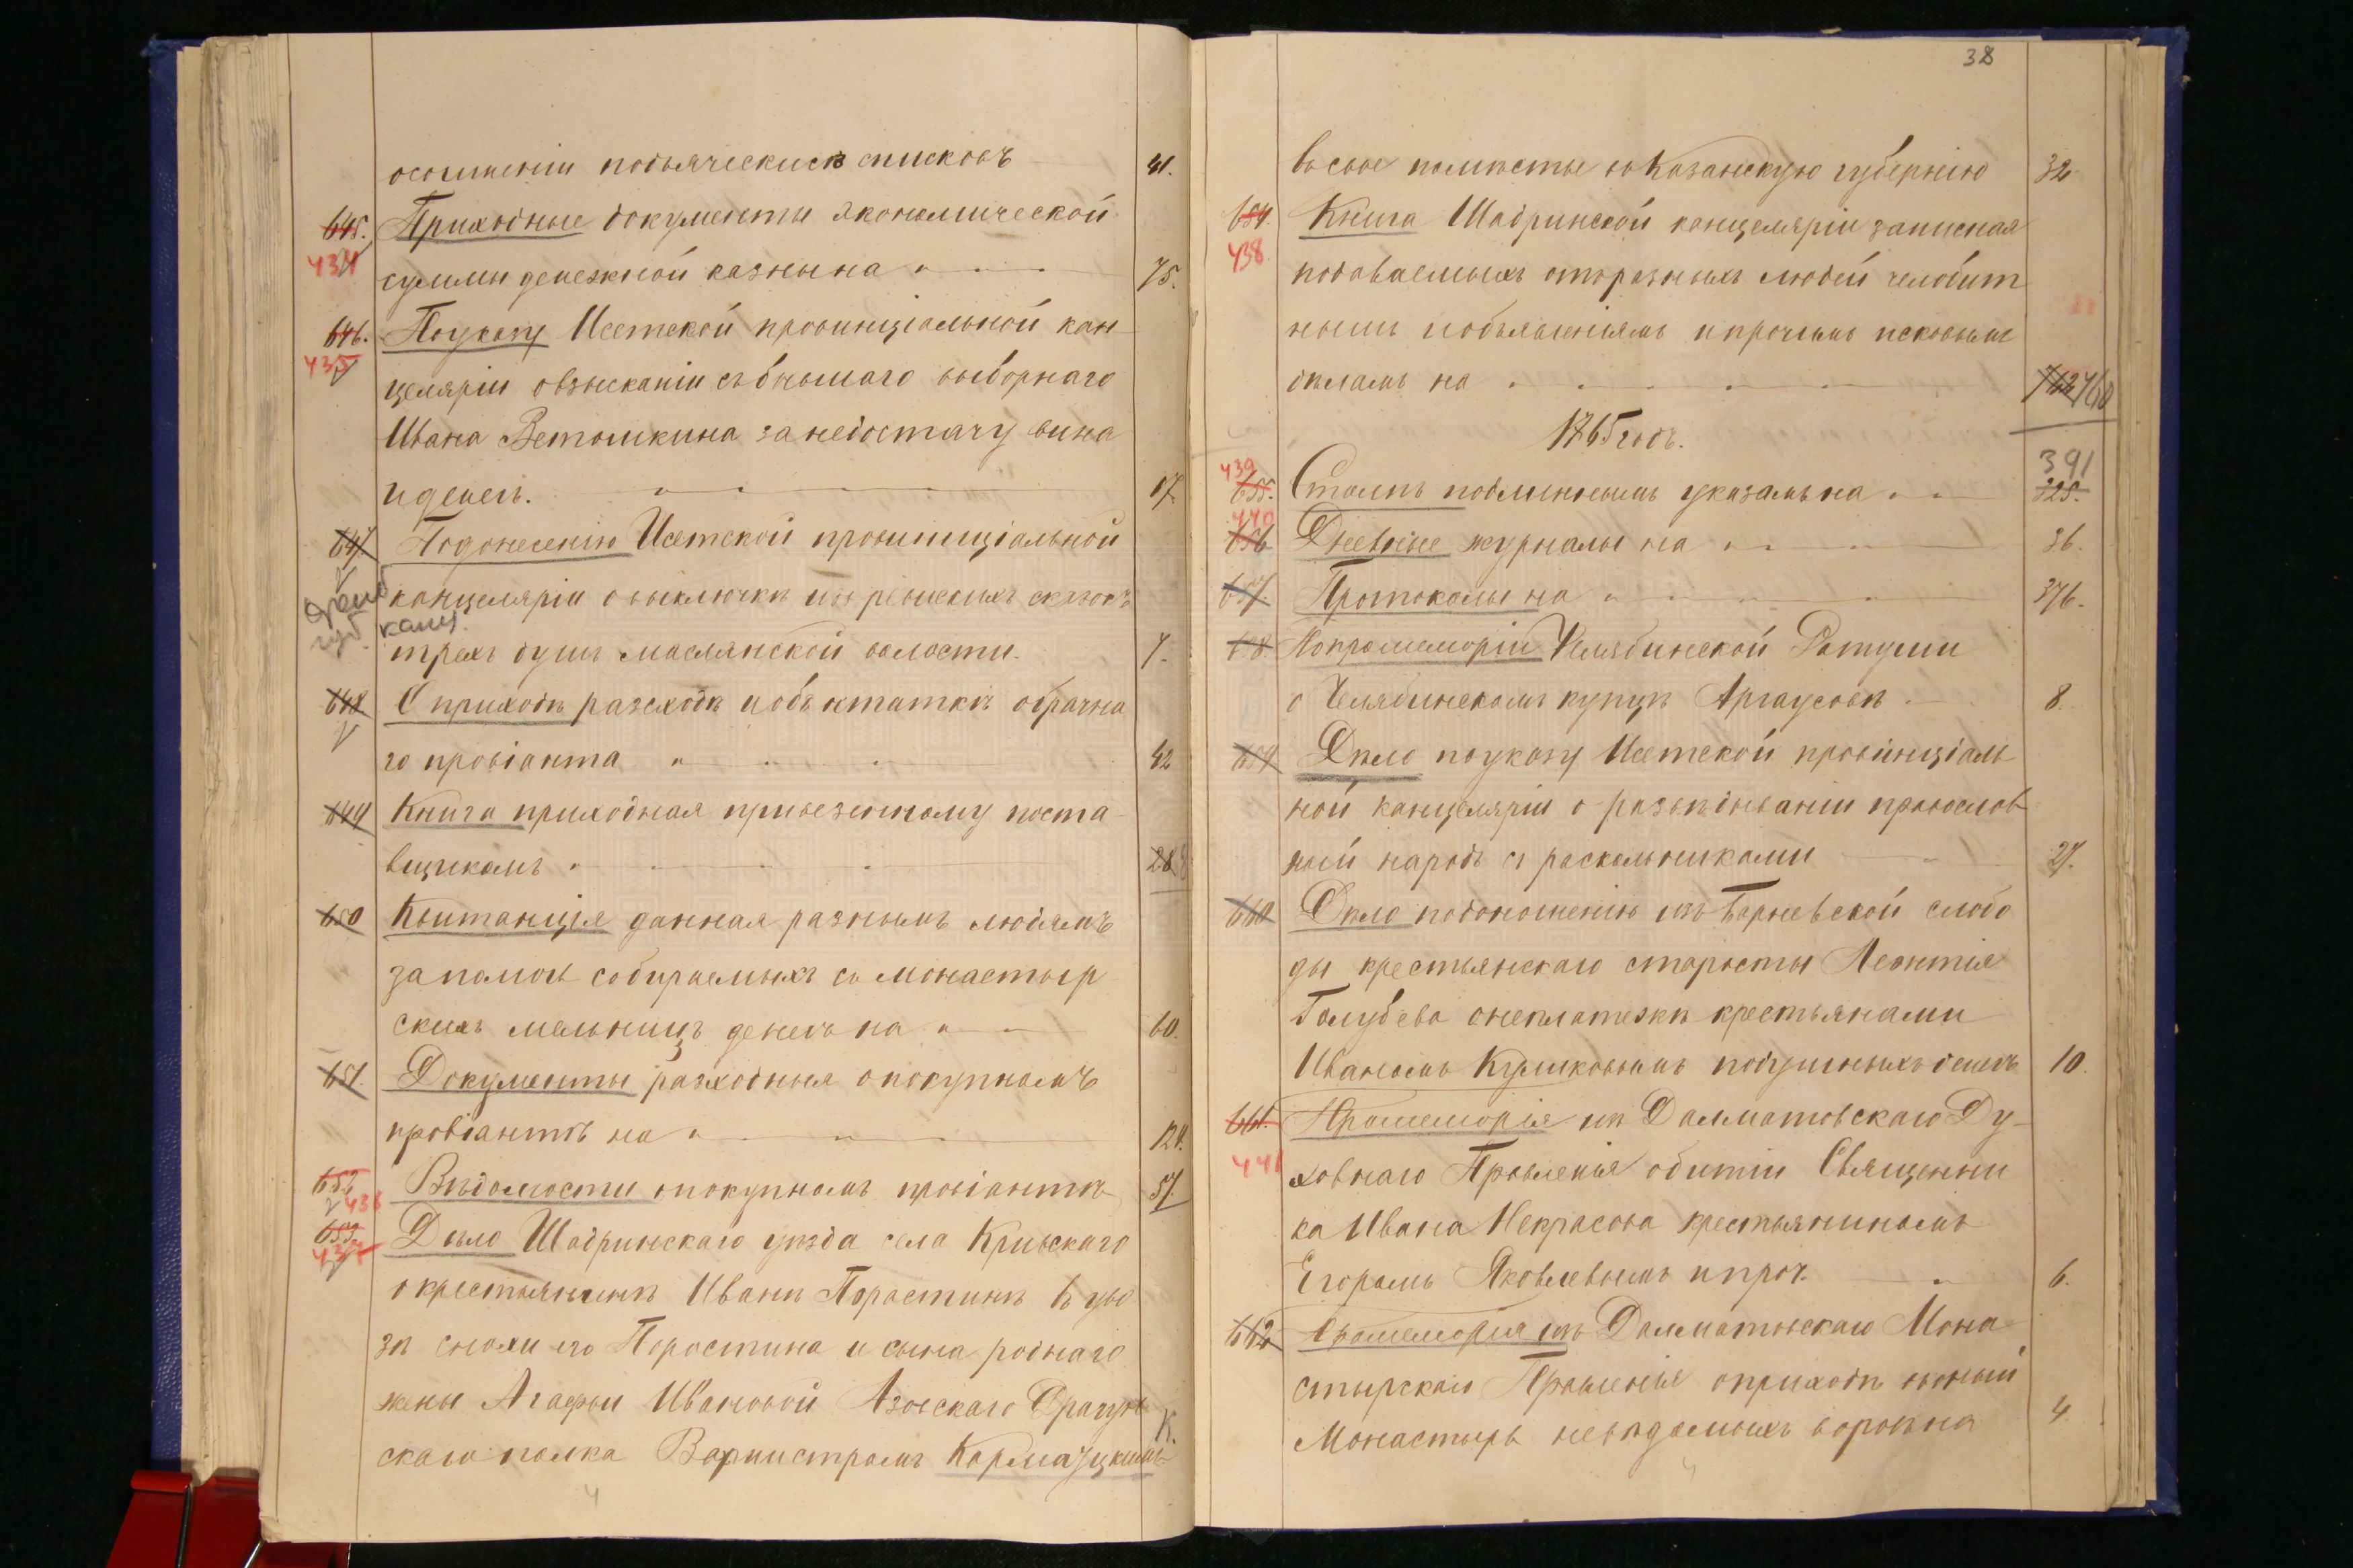 осочинении подьяческихъ списковъ 41.
645. Приходные документы экономической
434 суммы денежной казны на 75.
646. По указу Исетской провинціальной кан-
435 целяріи о взысканіи съ бывшаго выборнаго
Ивана Ветошкина за недостачу вина
и денегъ. 17.
647. По донесенію Исетской провинціальной
канцеляріи о выключкѣ изъ ревискихъ сказокъ
канц.
трехъ душъ маслянской волости. 7.
648 О приходѣ разсходѣ и объ остаткѣ оброчна
го провіанта 42
649 Книга приходная привезенному поста-
вщикамъ
650 Квитанція данная разнымъ людямъ
за помолъ собираемыхъ съ монастыр
скихъ мельницъ денегъ на 60.
651. Документы разходныя о покупномъ
провіантѣ на 124.
652 Вѣдомости о покупномъ провіантѣ 57.
436
653. Дѣло Шадринскаго уѣзда села Кривскаго
437 о крестьянинѣ Иванѣ Порастинѣ въ уво
зѣ снохи его Поростина и сына роднаго
жены Агафьи Ивановой Азовскаго Драгун
скаго полка Вахмистромъ Кармацкимъ
К.
38
въ свое помѣстье въ Казанскую губернію 32
654. Книга Шадринской канцеляріи записная
438. подаваемыхъ отъ разныхъ людей челобит
нымъ и объявленіямъ и прочимъ исковымъ
дѣламъ на 762 760
1765 годъ.
439 391
655. Столпъ подлиннымъ указамъ на 325.
440
656 Дневные журналы на 36.
657. Протоколы на 376.
658. По промеморіи Челябинской Ратуши
о Челябинскомъ купцѣ Аргаусовѣ 8.
659 Дѣло по указу Исетской провинціаль
ной канцеляріи о развѣдываніи православ
ный народъ съ раскольниками 27.
660 Дѣло по доношенію изъ Барневской слобо
ды крестьянскаго старосты Леонтія
Голубева о неплатежѣ крестьянами
Иваномъ Куликовымъ подушныхъ денегъ 10.
661. Промеморія изъ Далматовскаго Ду-
441 ховнаго Правленія о битіи Священни
ка Ивана Некрасова крестьяниномъ
Егоромъ Яковлевымъ и проч. 6.
662 Промеморія изъ Далматовскаго Мона
стырскаго Правленія о приходѣ въ оный
Монастырь невѣдомыхъ воровъ на 4